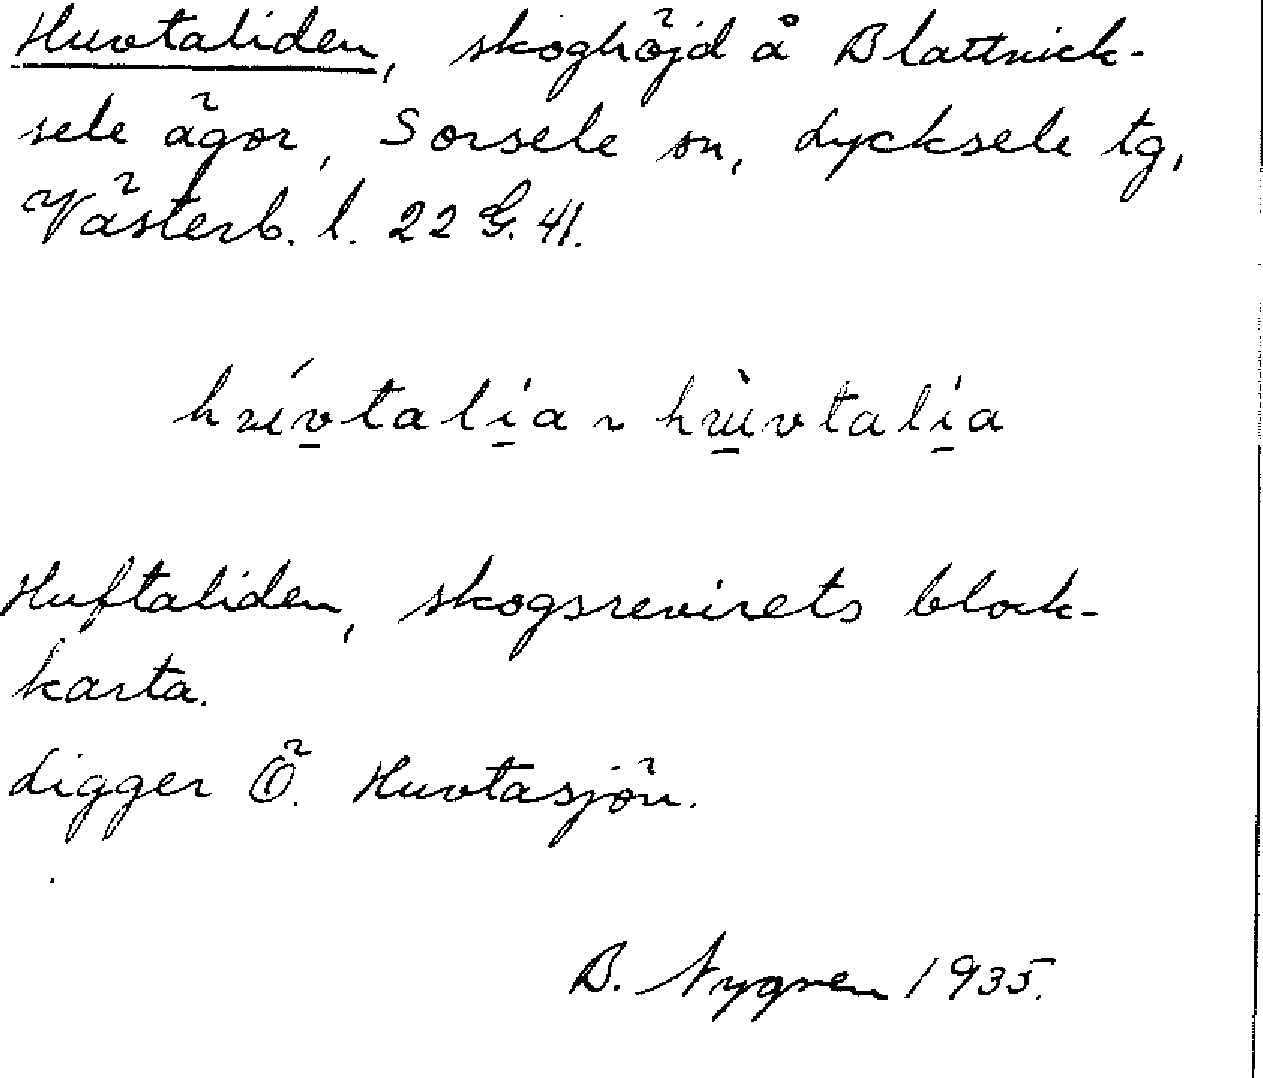 Huvtaliden, skoghöjd å Blattnick-
sele ägor, Sorsele sn, Lycksele tg,
Västerb. l. 22 G. 41.
Huftaliden, skogsrevirets block-
karta.
Ligger Ö. Huvtasjön.
B. Nygren 1935.